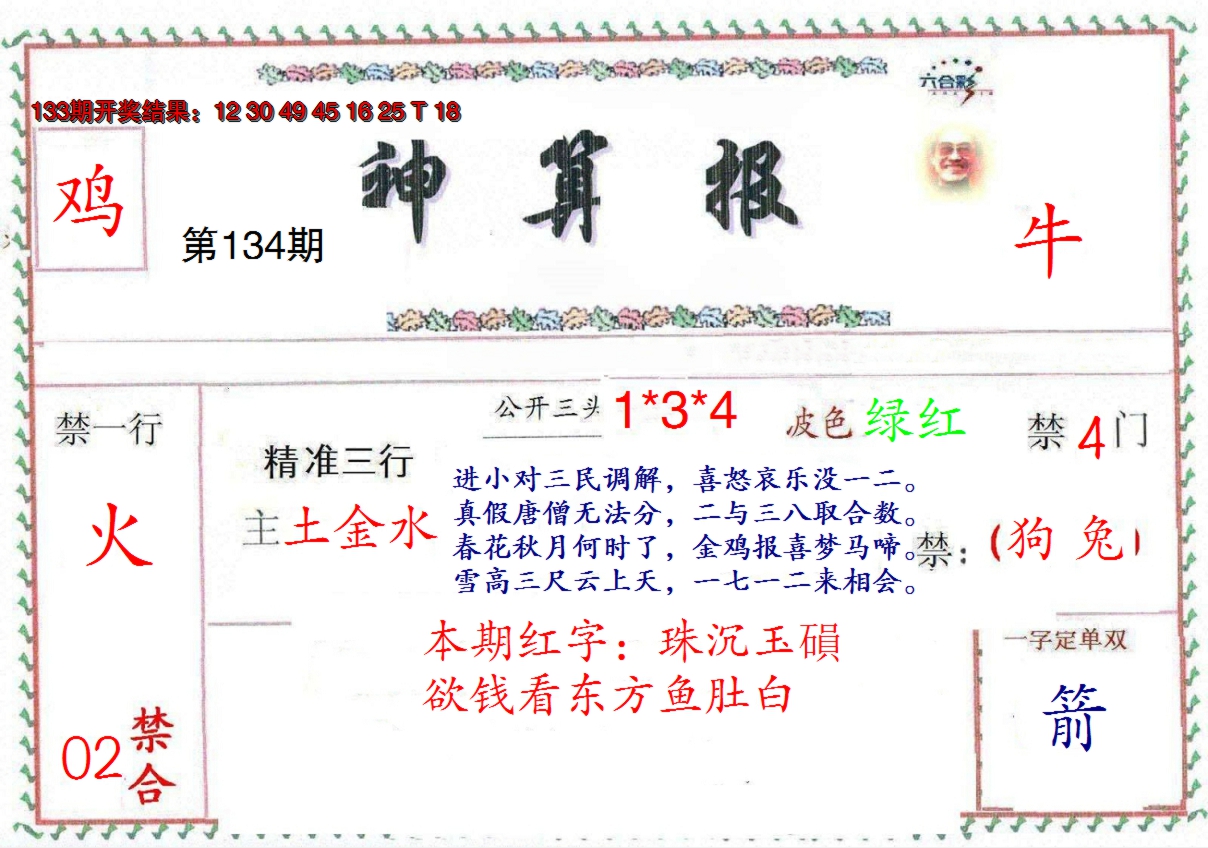 六合彩
133期开奖结果：12 30 49 45 16 25 T 18
鸡
神算报
第134期
牛
禁一行
火
02
禁合
公开三头 1*3*4
波色 绿红
禁 4 门
精准三行
主 土金水
进小对三民调解，喜怒哀乐没一二。
真假唐僧无法分，二与三八取合数。
春花秋月何时了，金鸡报喜梦马啼。
雪高三尺云上天，一七一二来相会。
禁：（狗 兔）
本期红字：珠沉玉磒
欲钱看东方鱼肚白
一字定单双
箭